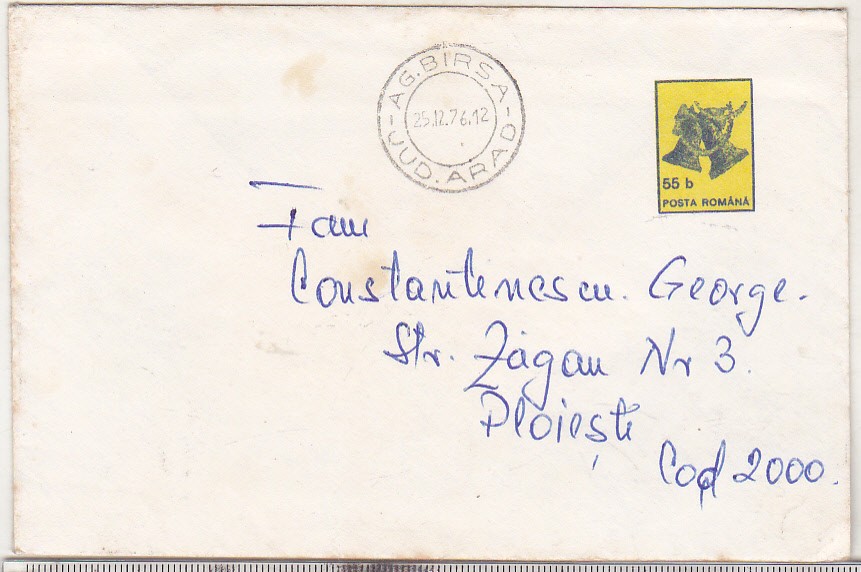 AG. BIRSA
25.12.76.12
JUD. ARAD
55 b
POSTA ROMÂNĂ
Fam
Constantinescu. George.
Str. Zăgan Nr 3.
Ploiești
Cod 2000.